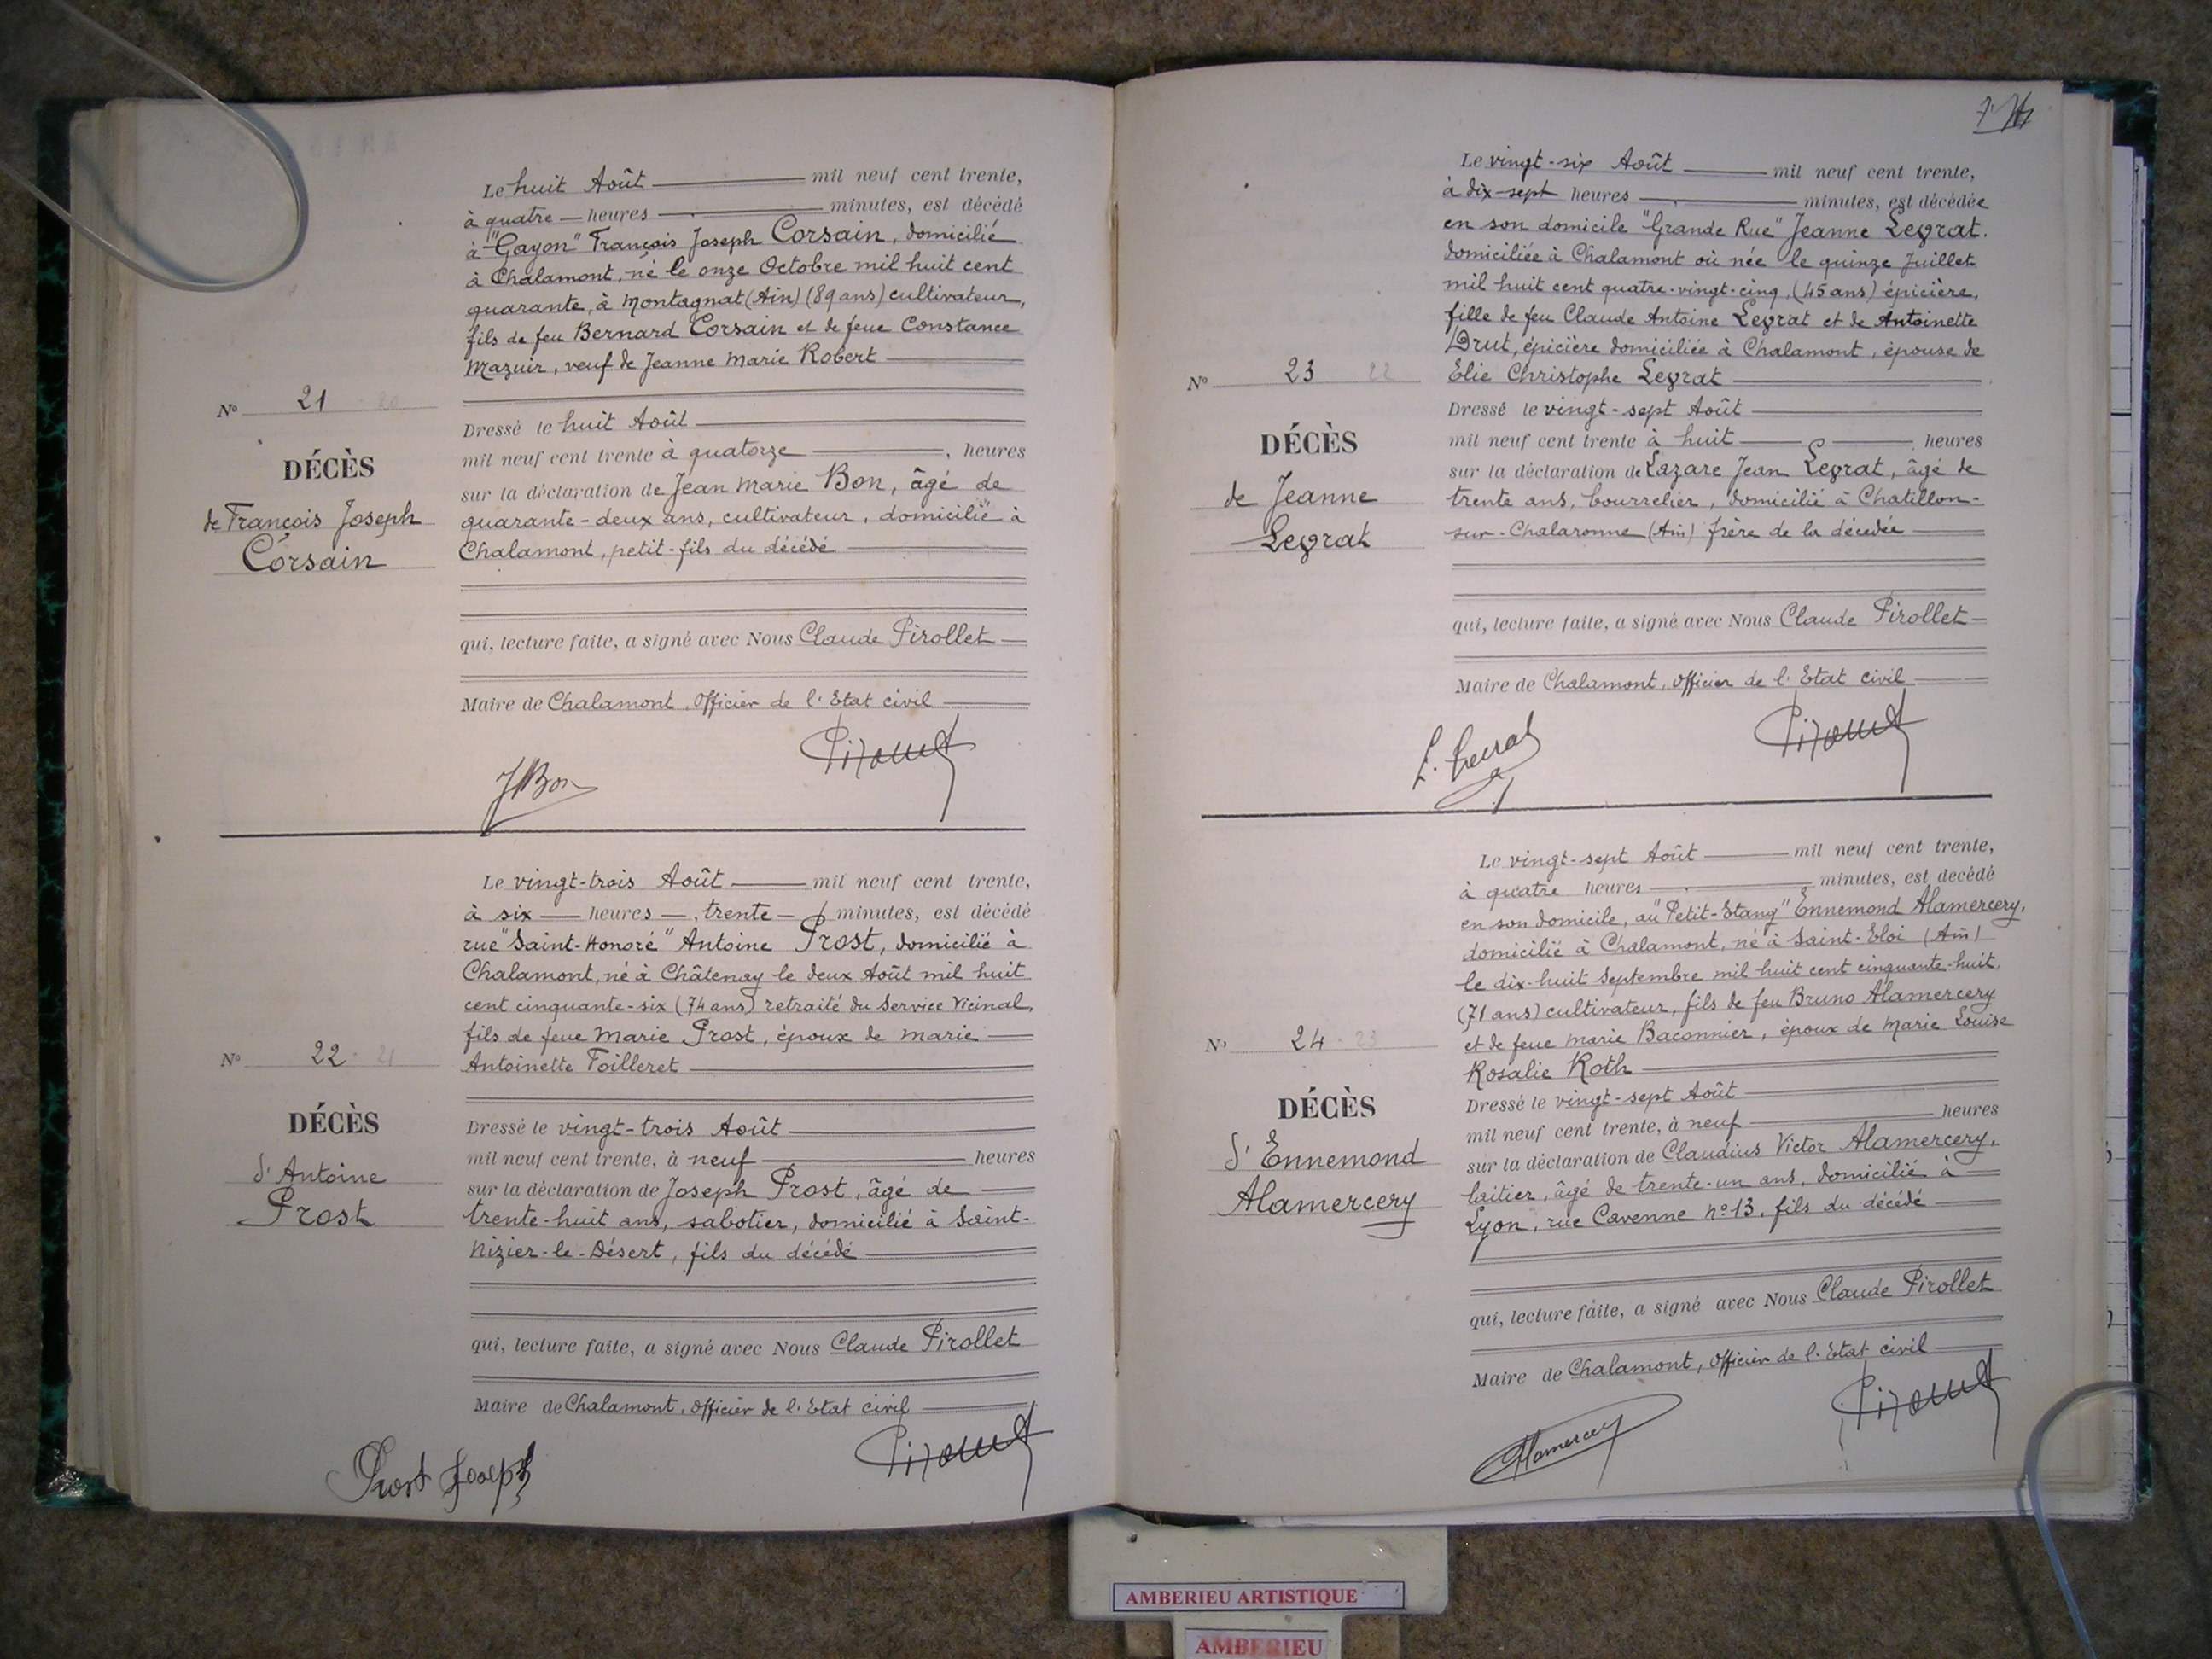 Le huit Août mil neuf cent trente,
à quatre heures minutes, est décédé
à "Gayon" François Joseph Corsain, domicilié
à Chalamont, né le onze Octobre mil huit cent
quarante, à Montagnat (Ain) (89 ans) cultivateur,
fils de feu Bernard Corsain et de feue Constance
Mazuir, veuf de Jeanne Marie Robert
N° 21 20
Dressé le huit Août
DÉCÈS
mil neuf cent trente à quatorze, heures
de François Joseph
sur la déclaration de Jean Marie Bon, âgé de
Corsain
quarante-deux ans, cultivateur, domicilié à
Chalamont, petit-fils du décédé
qui, lecture faite, a signé avec Nous Claude Pirollet
Maire de Chalamont, Officier de l'Etat civil
JBon Pirollet
Le vingt-trois Août mil neuf cent trente,
à six heures, trente minutes, est décédé
rue "Saint-Honoré" Antoine Prost, domicilié à
Chalamont, né à Châtenay le deux Août mil huit
cent cinquante-six (74 ans) retraité du Service Vicinal,
fils de feue Marie Prost, époux de Marie
N° 22 21
Antoinette Foilleret
DÉCÈS
Dressé le vingt-trois Août
mil neuf cent trente, à neuf heures
d'Antoine
sur la déclaration de Joseph Prost, âgé de
Prost
trente-huit ans, sabotier, domicilié à Saint-
Nizier-le-Désert, fils du décédé
qui, lecture faite, a signé avec Nous Claude Pirollet
Maire de Chalamont, Officier de l'Etat civil
Prost Joseph Pirollet
Le vingt-six Août mil neuf cent trente,
à dix-sept heures minutes, est décédée
en son domicile "Grande Rue" Jeanne Levrat.
domiciliée à Chalamont où née le quinze Juillet
mil huit cent quatre-vingt-cinq, (45 ans) épicière,
fille de feu Claude Antoine Levrat et de Antoinette
Drut, épicière domiciliée à Chalamont, épouse de
N° 23 22
Elie Christophe Levrat
Dressé le vingt-sept Août
DÉCÈS
mil neuf cent trente à huit heures
sur la déclaration de Lazare Jean Levrat, âgé de
de Jeanne
trente ans, bourrelier, domicilié à Chatillon-
Levrat
sur-Chalaronne (Ain) frère de la décédée
qui, lecture faite, a signé avec Nous Claude Pirollet
Maire de Chalamont, Officier de l'Etat civil
L. Levrat Pirollet
Le vingt-sept Août mil neuf cent trente,
à quatre heures minutes, est decédé
en son domicile, au "Petit-Etang" Ennemond Alamercery,
domicilié à Chalamont, né à Saint-Eloi (Ain)
le dix-huit Septembre mil huit cent cinquante-huit,
(71 ans) cultivateur, fils de feu Bruno Alamercery
et de feue Marie Baconnier, époux de Marie Louise
N° 24 23
Rosalie Roth
DÉCÈS
Dressé le vingt-sept Août
mil neuf cent trente, à neuf heures
d'Ennemond
sur la déclaration de Claudius Victor Alamercery,
Alamercery
laitier, âgé de trente-un ans, domicilié à
Lyon, rue Cavenne n° 13, fils du décédé
qui, lecture faite, a signé avec Nous Claude Pirollet
Maire de Chalamont, Officier de l'Etat civil
Alamercery Pirollet
AMBERIEU ARTISTIQUE
AMBERIEU